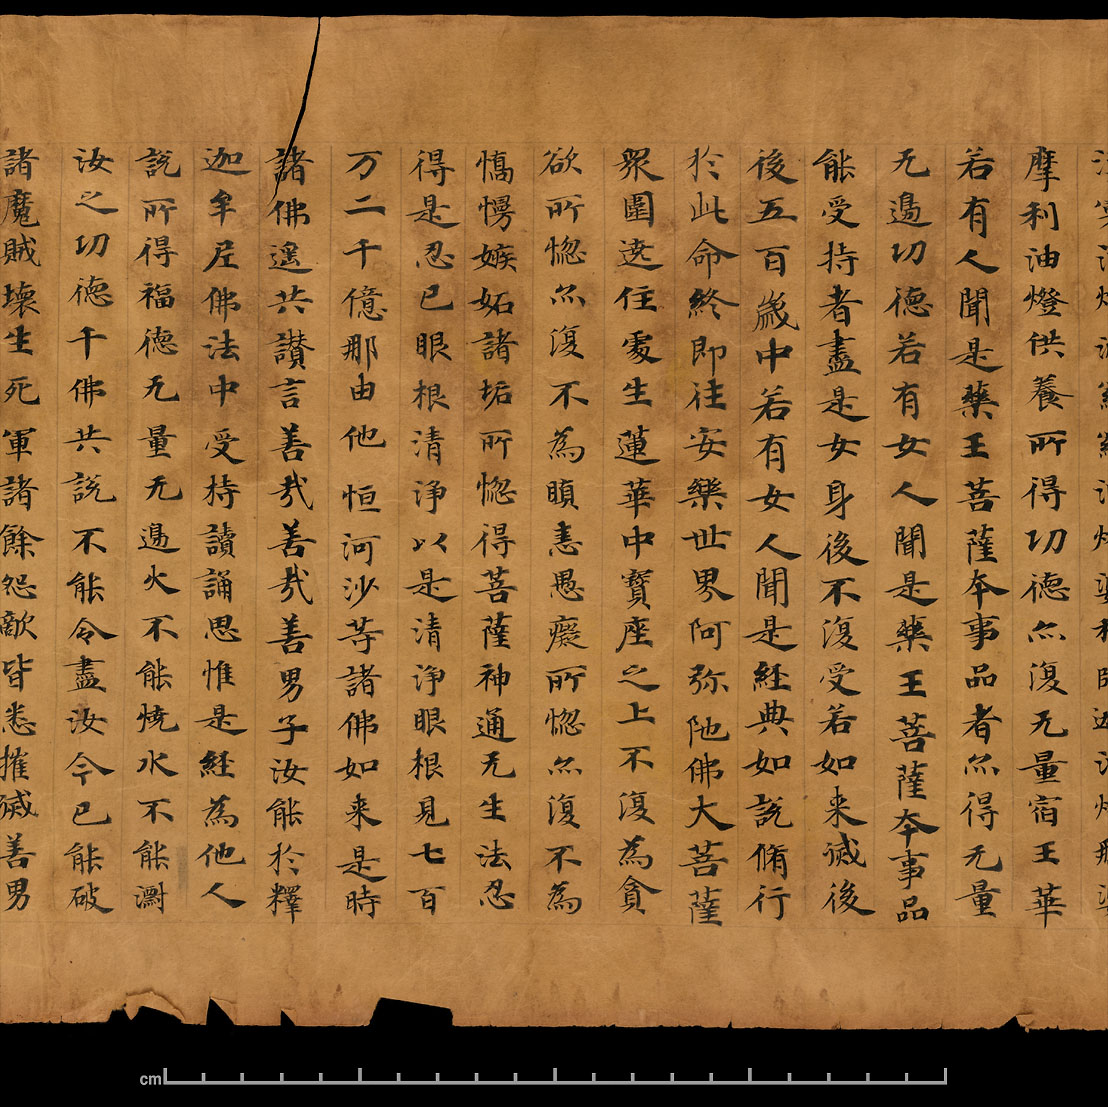 摩利油燈供養所得功德亦復无量宿王華
若有人聞是藥王菩薩本事品者亦得无量
无邊功德若有女人聞是藥王菩薩本事品
能受持者盡是女身後不復受若如来滅後
後五百歲中若有女人聞是經典如說脩行
於此命終即往安樂世界阿弥陁佛大菩薩
眾圍遶住處生蓮華中寶座之上不復為貪
欲所惱亦復不為瞋恚愚癡所惱亦復不為
憍慢嫉妬諸垢所惱得菩薩神通无生法忍
得是忍已眼根清淨以是清淨眼根見七百
万二千億那由他恒河沙等諸佛如来是時
諸佛遥共讃言善哉善哉善男子汝能於釋
迦牟尼佛法中受持讀誦思惟是經為他人
說所得福德无量无邊火不能燒水不能漂
汝之功德千佛共說不能令盡汝今已能破
諸魔賊壞生死軍諸餘怨敵皆悉摧滅善男
cm